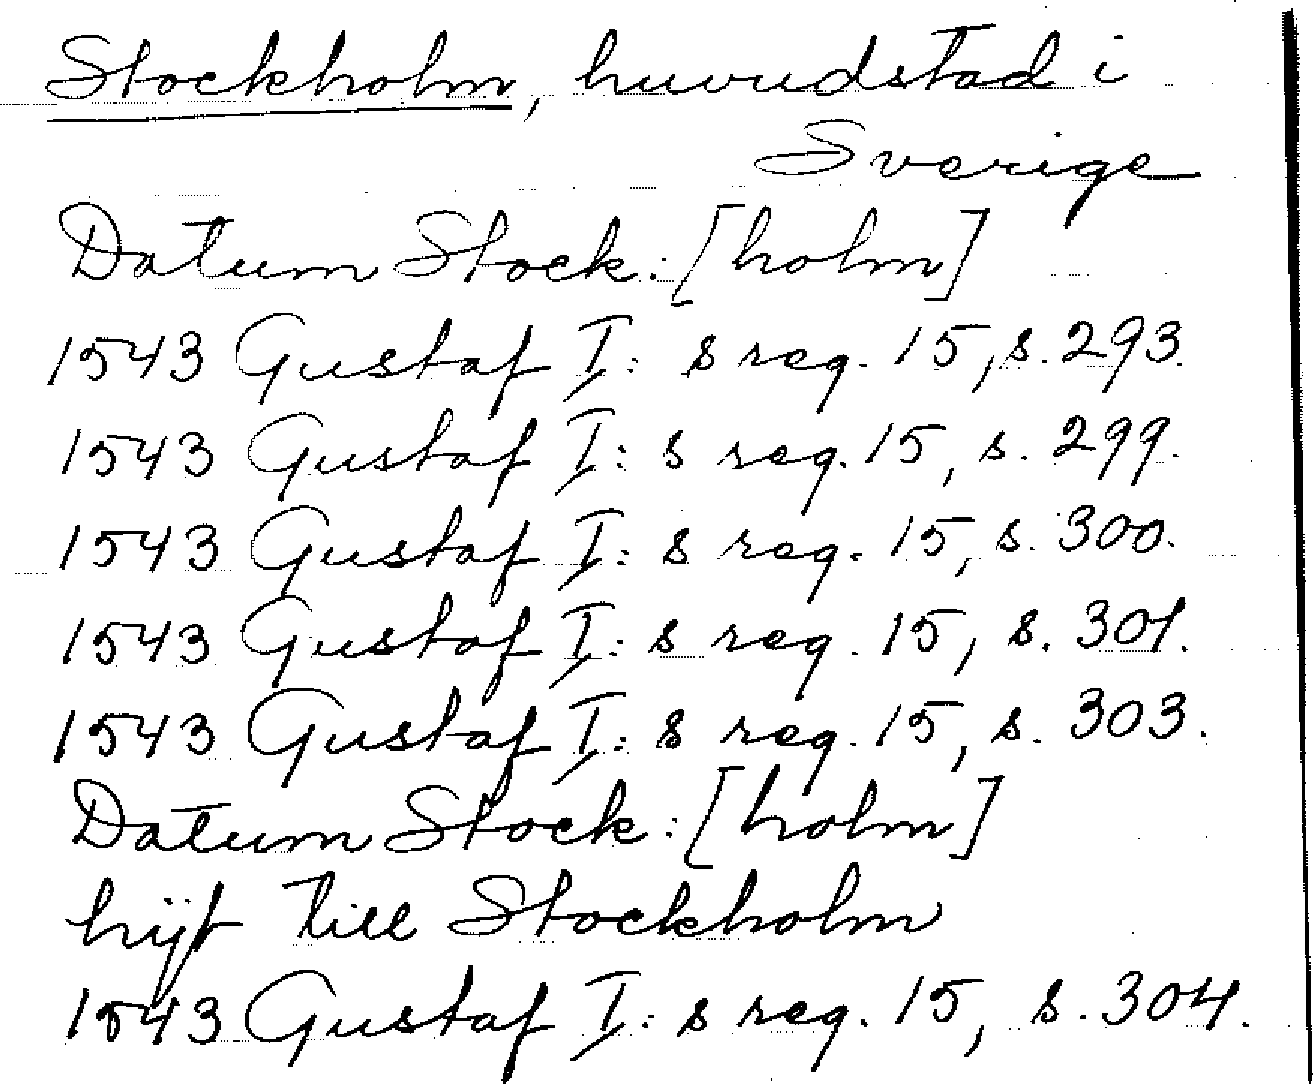 Stockholm, huvudstad i
Sverige
Datum Stock: [holm]
1543 Gustaf I: s reg. 15, s. 293.
1543 Gustaf I: s reg. 15, s. 299.
1543 Gustaf I: s reg. 15, s. 300.
1543 Gustaf I: s reg. 15, s. 301.
1543 Gustaf I: s reg. 15, s. 303.
Datum Stock: [holm]
hijt till Stockholm
1543 Gustaf I: s reg. 15, s. 304.